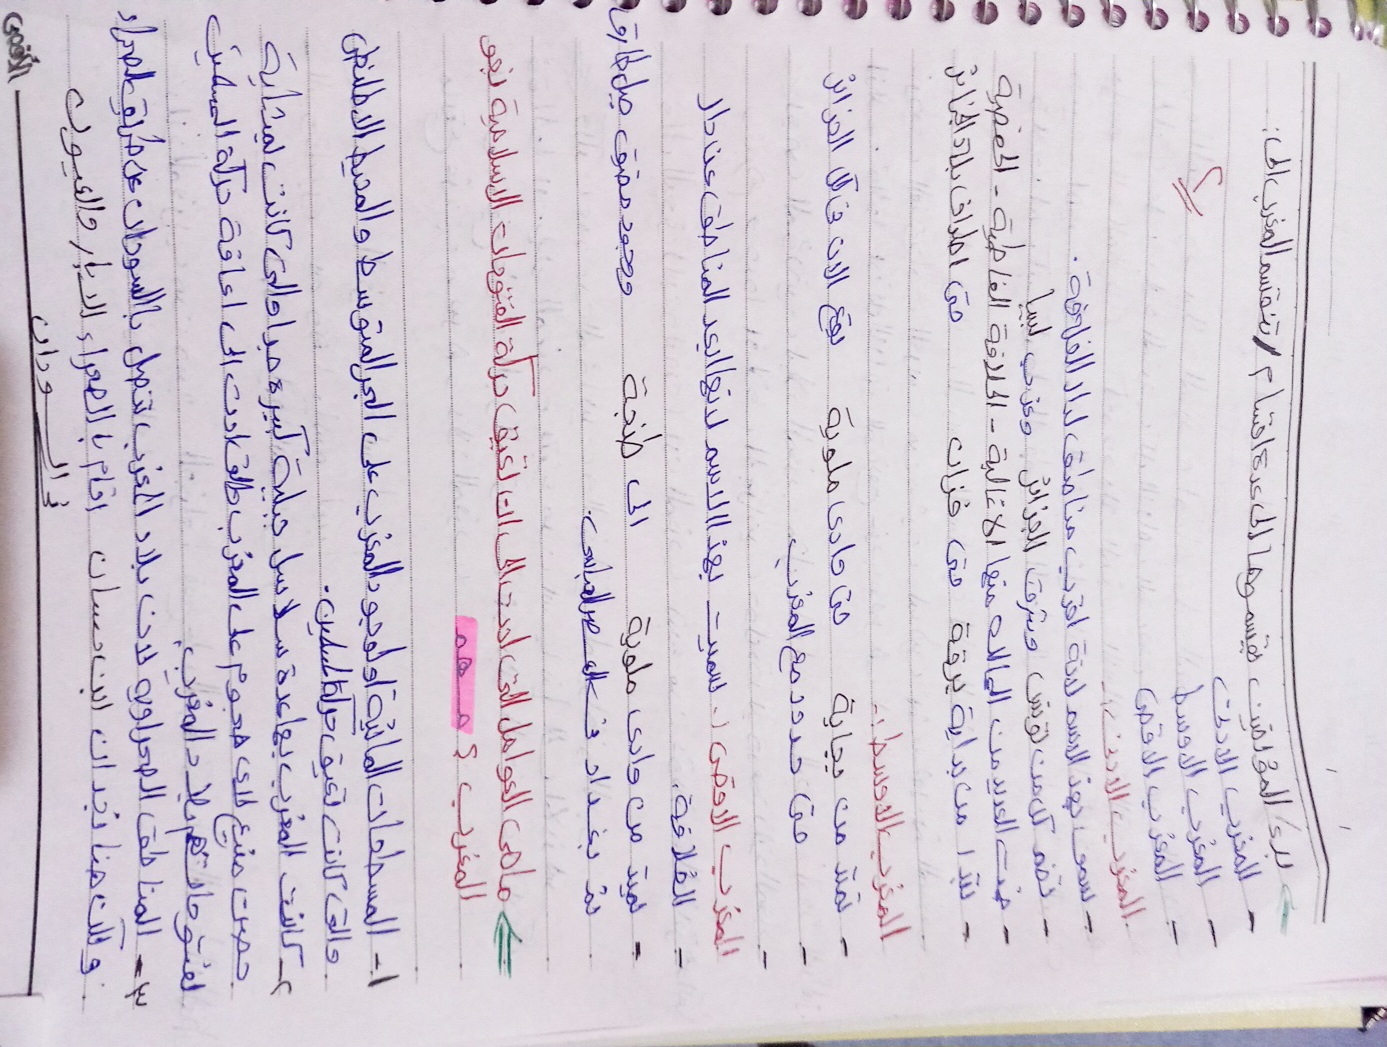 بدء المؤرخين يقسموها الى عدة اقسام / تنقسم المغرب الى:
- المغرب الادنى
- المغرب الاوسط
- المغرب الاقصى
٢
المغرب الادنى:-
- سمى بهذ الاسم لانة اقرب مناطق لدار الخلافة.
- تضم كل من تونس وشرق الجزائر وغرب ليبيا
- ضمت العديد من الممالك منها الاغالبة - الخلافة الفاطمية - الحفصية
- تبدا من بداية برقة حتى فزان حتى اطراف بلاد الجزائر
المغرب الاوسط:-
- تمتد من بجاية حتى وادى ملوية يقع الان فى كل الجزائر
- حتى حدود مع المغرب
-
المغرب الاقصى:- سميت بهذا الاسم لانها ابعد المناطق عن دار
- الخلافة.
- تميتد من وادى ملوية الى طنجة ووجود مضيق جبل طارق
ثم بغداد فى العصر العباسى.
ماهى العوامل التى ادت الى ان تعيق حركة الفتوحات الاسلامية نحو
المغرب ؟ مهم
١- المسطحات المائية او لوجود المغرب على البحر المتوسط والمحيط الاطلنطى
والتى كانت تعيق حركة المسلمين.
٢- كانت المغرب بها عدة سلاسل جبلية كبيرة جدا والتى كانت بمثابة
حصن منيع لاى هجوم على المغرب والتى ادت الى اعاقة حركة المسلمين
لفتوحاتهم بلاد المغرب.
٣- المناطق الصحراوية لان بلاد المغرب تتصل باالسودان عن طريق الصحراء
ولكن هنا نجد ان ابن حسان اقام باالصحراء الابار والعيون
فى السودان
الأقصى